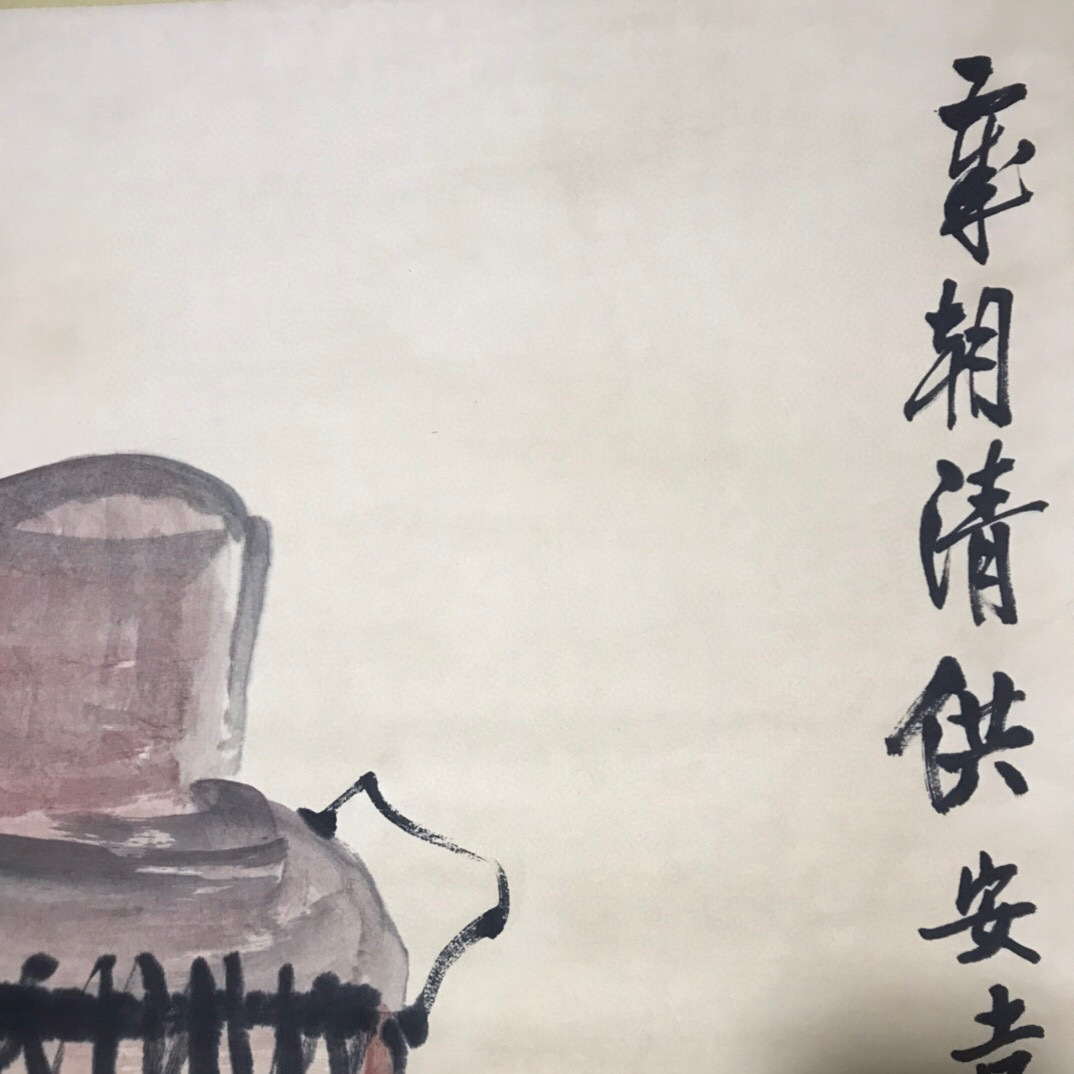 歲朝清供安吉